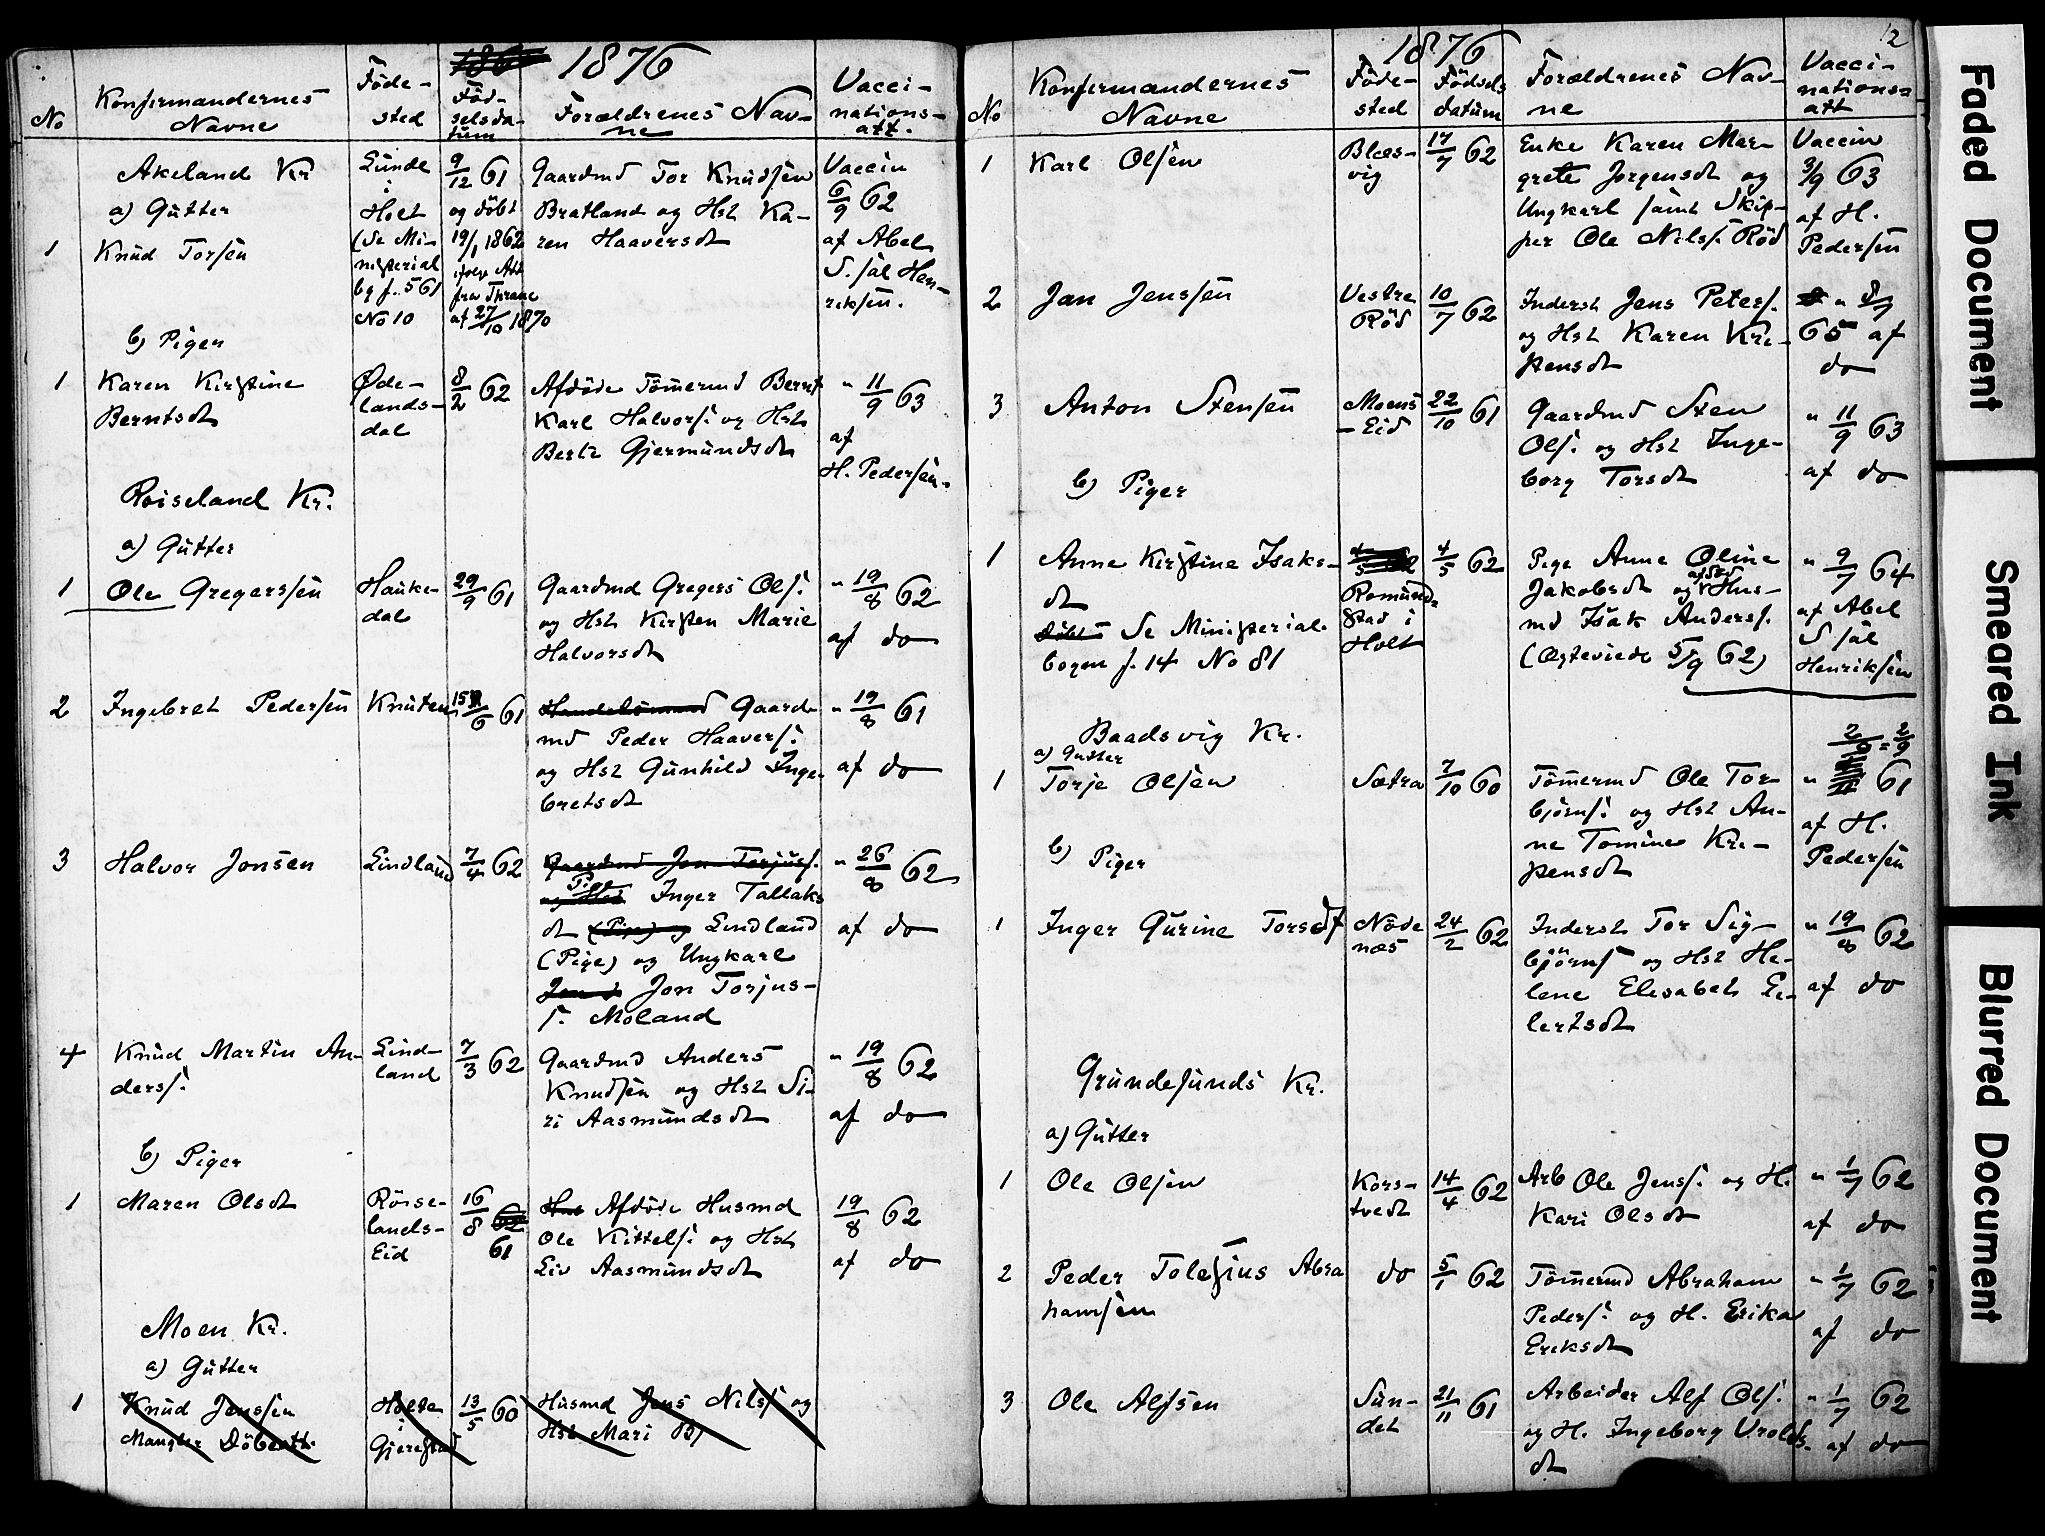 1876
No
Konfirmandernes
Navne
Föde-
sted
Föd-
selsda-
tum
Forældrenes Nav-
ne
Vacci-
nations-
att.
Akeland Kr
a) Gutter
1
Knud Torsen
Lunde
i
Holt
(Se Mi-
nisterial
bg f. 561
No 10
9/12 61
og döbt
19/1 1862
ifölge Att
fra Thrane
af 27/10 1870
Gaardmd Tor Knudsen
Bratland og Hst Ka-
ren Haaversdt
Vaccin
6/9 62
af Abel
S. sál Hen-
riksen.
b) Piger
1
Karen Kirstine
Berntsdt
Øde-
lands-
dal
8/2 62
Afdöde Tömermd Bernt
Karl Halvors. og Hst
Berte Gjermundsdt
" 11/9 63
af
H. Pedersen.
Roiseland Kr.
a) Gutter
1
Ole Gregerssen
Hauke-
dal
29/9 61
Gaardmd Gregers Ols.
og Hst Kirsten Marie
Halvorsdt
" 19/8 62
af do
2
Ingebret Pedersen
Knuten
15/6 61
Handelsmand Gaard-
md Peder Haavers.
og Hst Gunhild Inge-
bretsdt
" 19/8 61
af do
3
Halvor Jonsen
Lindland
7/4 62
Gaardmd Jon Torjuss.
og Hst Pige Inger Tallaks
dt (Pige) og Lindland
(Pige) og Ungkarl
Jon Torjus-
s. Moland
" 26/8 62
af do
4
Knud Martin An-
derss.
Lind-
land
7/3 62
Gaardmd Anders
Knudsen og Hst Si-
ri Aasmundsdt
" 19/8 62
af do
b) Piger
1
Maren Olsdt
Röise-
lands-
Eid
16/8 62
61
Hus Afdöde Husmd
Ole Kittels. og Hst
Liv Aasmundsdt
19/8 62
af do
Moen Kr.
a) Gutter
1
Knud Jenssen
Mangler Döbeatt.
Holte
i
Gjerestad
13/5 60
Husmd Jens Nils. og
Hst Mari
12
1876
No
Konfirmandernes
Navne
Föde-
sted
Födsels
datum
Forældrenes Nav-
ne
Vacci-
nations=
att
1
Karl Olsen
Blæs-
vig
17/7 62
Enke Karen Mar-
grete Jorgensdt og
Ungkarl samt Skip-
per Ole Nilss. Röd
Vaccin
3/9 63
af H.
Pedersen
2
Jan Jenssen
Vestre
Röd
10/7 62
Inderst Jens Peters.
og Hst Karen Kri-
stensdt
" 8/7
65 af
do
3
Anton Stensen
Moens
- Eid
22/10 61
Gaardmd Sten
Ols. og Hst Inge-
borg Torsdt
" 11/9 63
af do
b) Piger
1
Anne Kirstine Isaks-
dt
döbt Se Ministerial-
bogen f. 14 No 81
4/5 62
Romund-
stad i
Holt
4/5 62
Pige Anne Oline
Jakobsdt og afdød Hus-
md Isak Anders.
(Ægteviede 5/9 62)
" 9/7 64
af Abel
S sál
Henriksen
Baadsvig Kr.
a) Gutter
1
Torje Olsen
Sætra
7/10 60
Tömermd Ole Tor-
björns. og Hst An-
ne Tomine Kri-
stensdt
2/9 = 2/9
" 61
af H.
Pedersen
b) Piger
1
Inger Gurine Torsdt
Nöde
næs
24/2 62
Inderst Tor Sig-
björns og Hst He-
lene Elisabet Ei-
lertsdt
" 19/8 62
af do
Grundesunds Kr.
a) Gutter
1
Ole Olsen
Kors-
tvedt
14/4 62
Arb Ole Jenss. og H.
Kari Olsdt
" 1/7 62
af do
2
Peder Tolefsius Abra
hamsen
do
5/1 62
Tömermd Abraham
Peders. og H. Erika
Eriksdt
" 1/7 62
af do
3
Ole Alfsen
Sun-
det
21/11 61
Arbeider Alf Ols.
og H. Ingeborg Urolds-
dt
" 1/7 62
af do
Faded Document
Smeared Ink
Blurred Document